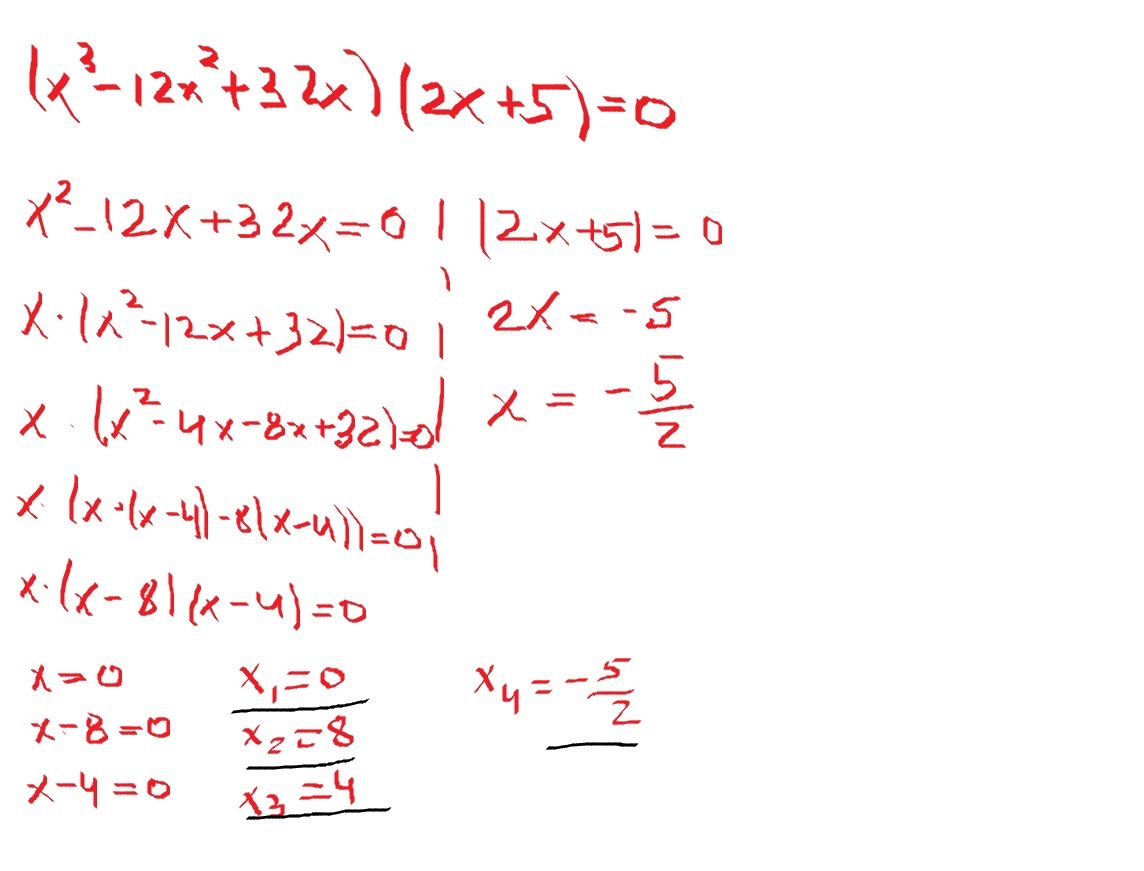 (x³-12x²+32x)(2x+5)=0
x²-12x+32x=0 | (2x+5)=0
x·(x²-12x+32)=0 | 2x=-5
x·(x²-4x-8x+32)=0 | x=-5/2
x·(x·(x-4)-8(x-4))=0 |
x·(x-8)(x-4)=0
x=0 x₁=0 x₄=-5/2
x-8=0 x₂=8
x-4=0 x₃=4